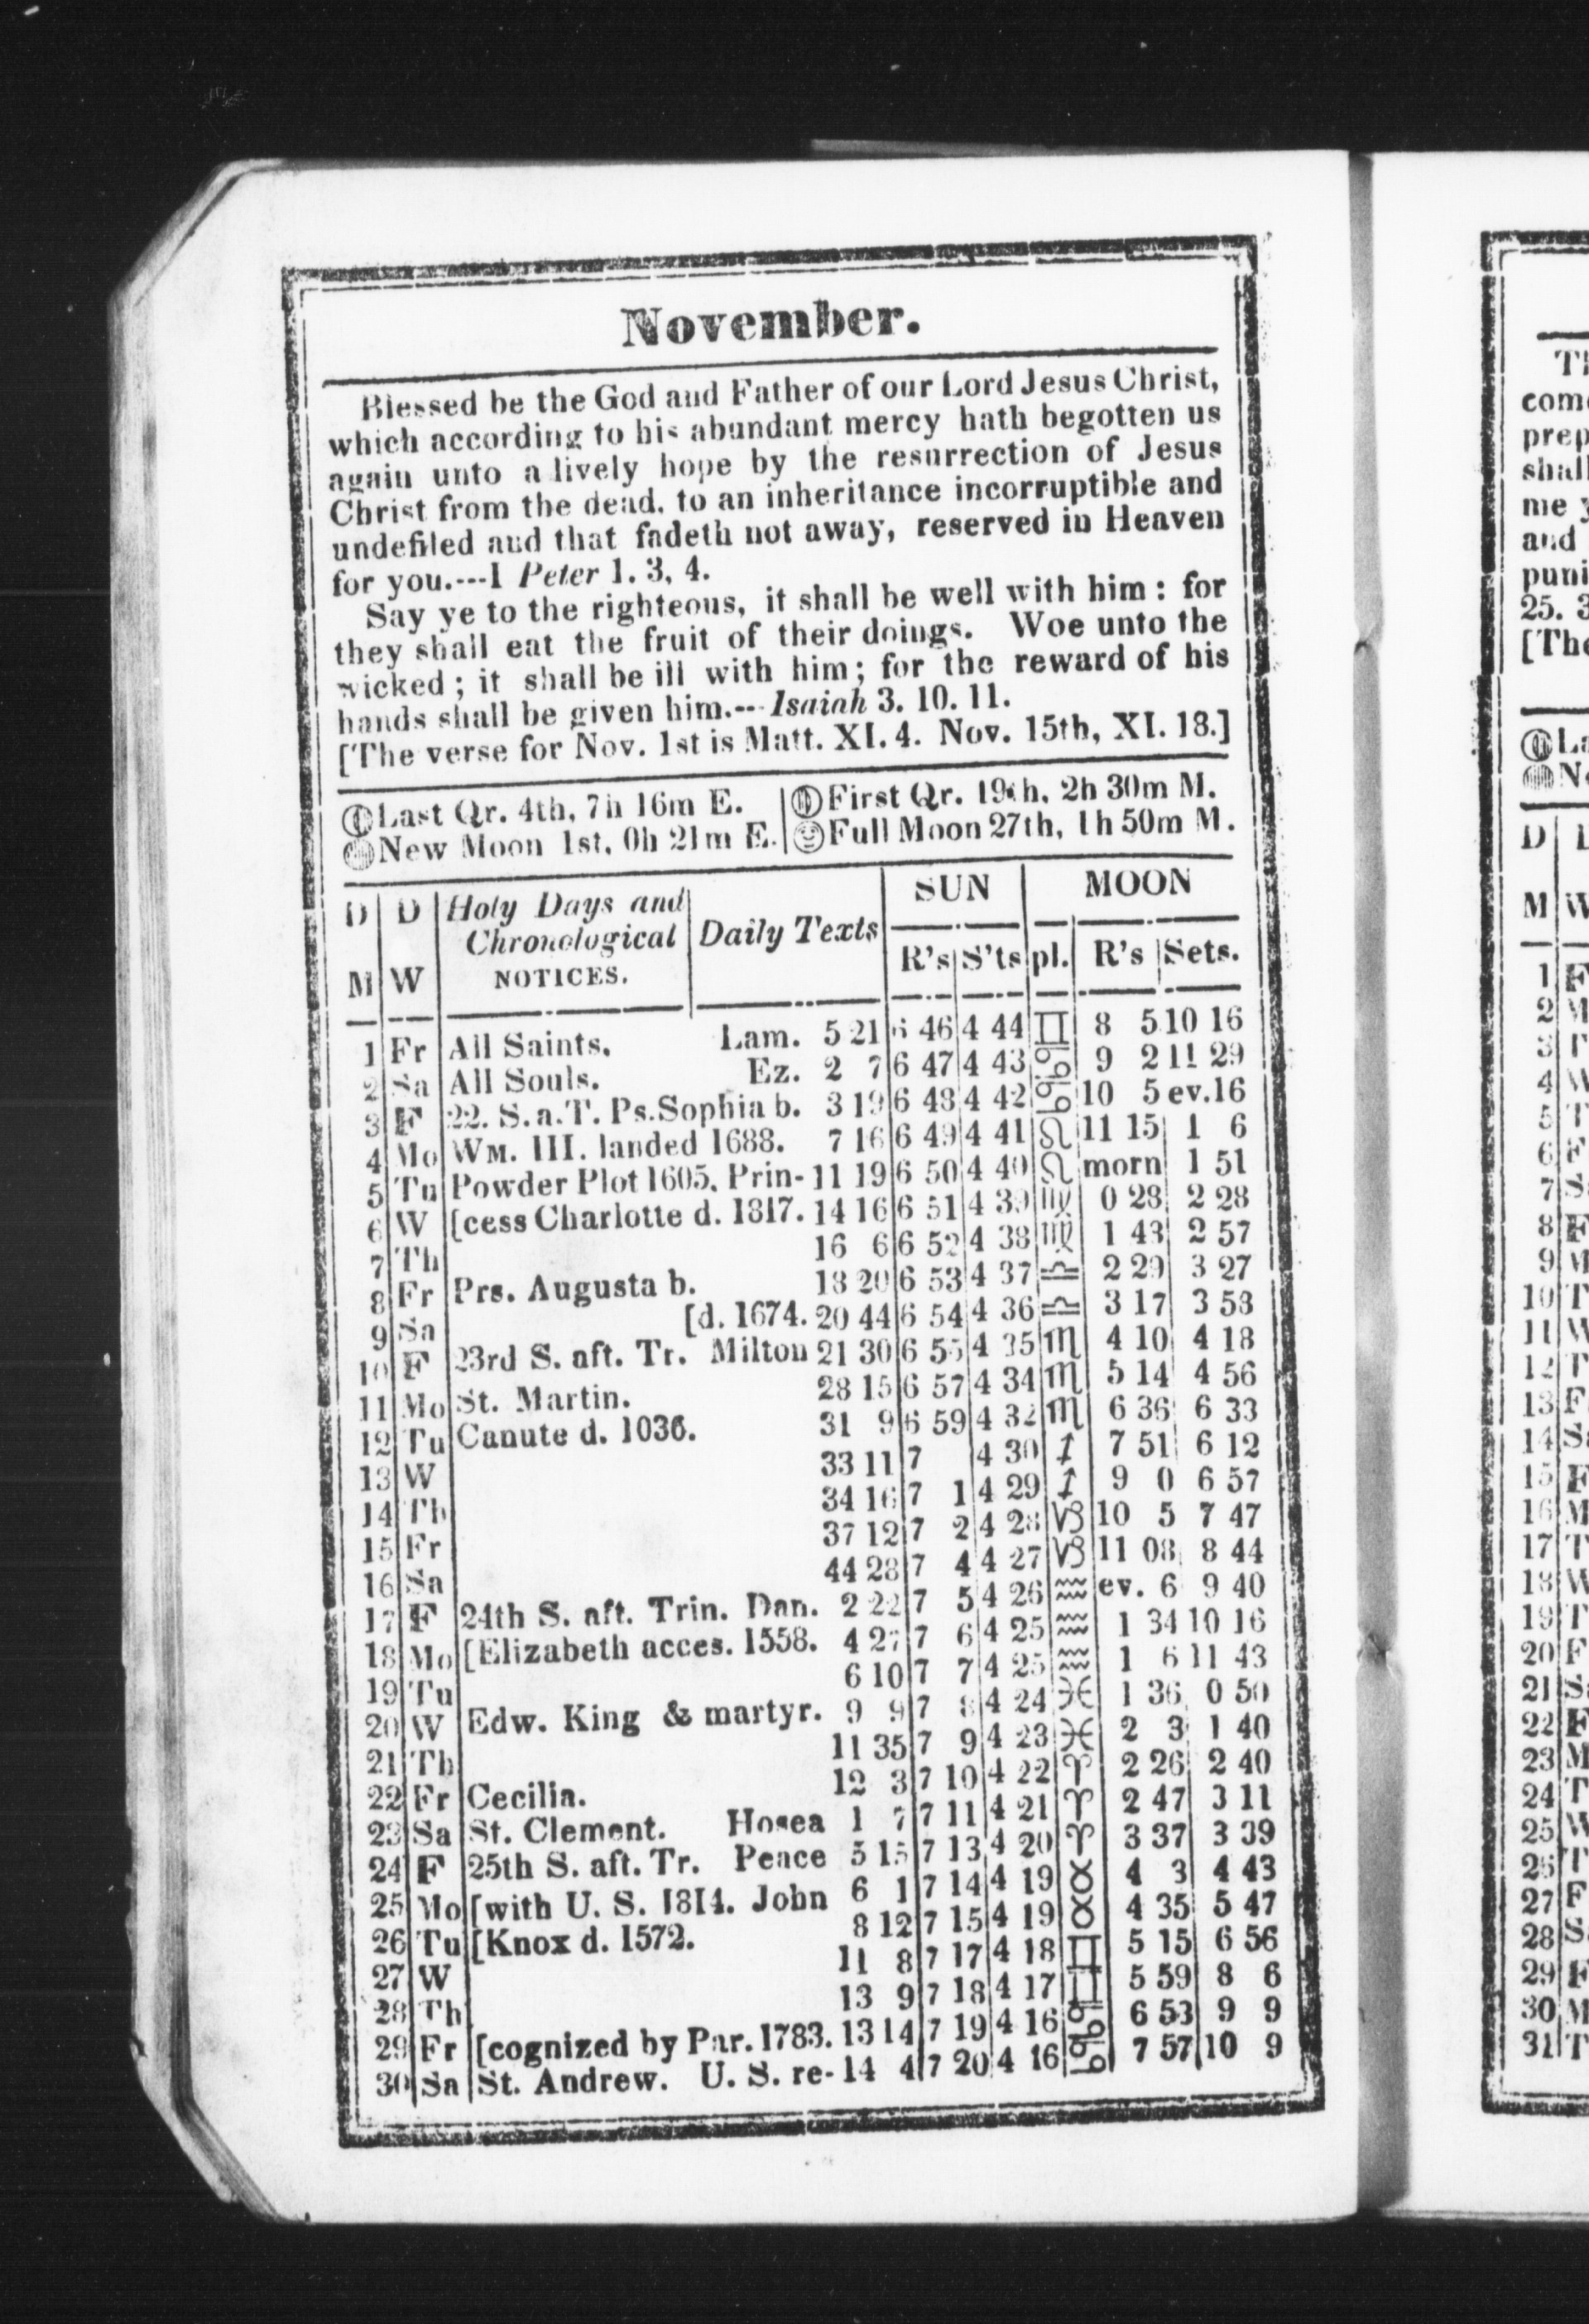 November.
Blessed be the God and Father of our Lord Jesus Christ,
which according to his abundant mercy hath begotten us
again unto a lively hope by the resurrection of Jesus
Christ from the dead, to an inheritance incorruptible and
undefiled and that fadeth not away, reserved in Heaven
for you.---I Peter 1. 3, 4.
Say ye to the righteous, it shall be well with him : for
they shall eat the fruit of their doings. Woe unto the
wicked ; it shall be ill with him ; for the reward of his
hands shall be given him.--- Isaiah 3. 10. 11.
[The verse for Nov. 1st is Matt. XI. 4. Nov. 15th, XI. 18.]
Last Qr. 4th, 7h 16m E. First Qr. 19th, 2h 30m M.
New Moon 1st, 0h 21m E. Full Moon 27th, 1h 50m M.
D M D W Holy Days and Chronological NOTICES. Daily Texts SUN R's S'ts MOON pl. R's Sets.
1 Fr All Saints. Lam. 5 21 6 46 4 44 ♊ 8 5 10 16
2 Sa All Souls. Ez. 2 7 6 47 4 43 ♋ 9 2 11 29
3 F 22. S. a. T. Ps. Sophia b. 3 19 6 48 4 42 ♋ 10 5 ev. 16
4 Mo WM. III. landed 1688. 7 16 6 49 4 41 ♌ 11 15 1 6
5 Tu Powder Plot 1605. Prin- 11 19 6 50 4 40 ♌ morn 1 51
6 W [cess Charlotte d. 1817. 14 16 6 51 4 39 ♍ 0 28 2 28
7 Th 16 6 6 52 4 38 ♍ 1 43 2 57
8 Fr Prs. Augusta b. 18 20 6 53 4 37 ♎ 2 29 3 27
9 Sa [d. 1674. 20 44 6 54 4 36 ♎ 3 17 3 53
10 F 23rd S. aft. Tr. Milton 21 30 6 55 4 35 ♏ 4 10 4 18
11 Mo St. Martin. 28 15 6 57 4 34 ♏ 5 14 4 56
12 Tu Canute d. 1036. 31 9 6 59 4 32 ♏ 6 36 6 33
13 W 33 11 7 4 30 ♐ 7 51 6 12
14 Th 34 16 7 1 4 29 ♐ 9 0 6 57
15 Fr 37 12 7 2 4 28 ♑ 10 5 7 47
16 Sa 44 28 7 4 4 27 ♑ 11 08 8 44
17 F 24th S. aft. Trin. Dan. 2 22 7 5 4 26 ♒ ev. 6 9 40
18 Mo [Elizabeth acces. 1558. 4 27 7 6 4 25 ♒ 1 34 10 16
19 Tu 6 10 7 7 4 25 ♒ 1 6 11 43
20 W Edw. King & martyr. 9 9 7 8 4 24 ♓ 1 36 0 50
21 Th 11 35 7 9 4 23 ♓ 2 3 1 40
22 Fr Cecilia. 12 3 7 10 4 22 ♈ 2 26 2 40
23 Sa St. Clement. Hosea 1 7 7 11 4 21 ♈ 2 47 3 11
24 F 25th S. aft. Tr. Peace 5 15 7 13 4 20 ♈ 3 37 3 39
25 Mo [with U. S. 1814. John 6 1 7 14 4 19 ♉ 4 3 4 43
26 Tu [Knox d. 1572. 8 12 7 15 4 19 ♉ 4 35 5 47
27 W 11 8 7 17 4 18 ♊ 5 15 6 56
28 Th 13 9 7 18 4 17 ♊ 5 59 8 6
29 Fr [cognized by Par. 1783. 13 14 7 19 4 16 ♋ 6 53 9 9
30 Sa St. Andrew. U. S. re- 14 4 7 20 4 16 ♋ 7 57 10 9
com
prep
shall
me y
and
puni
25. 3
[The
D
M W
1 F
2 M
3 T
4 W
5 T
6 F
7 S
8 F
9 M
10 T
11 W
12 T
13 F
14 S
15 F
16 M
17 T
18 W
19 T
20 F
21 S
22 F
23 M
24 T
25 W
26 T
27 F
28 S
29 F
30 M
31 T